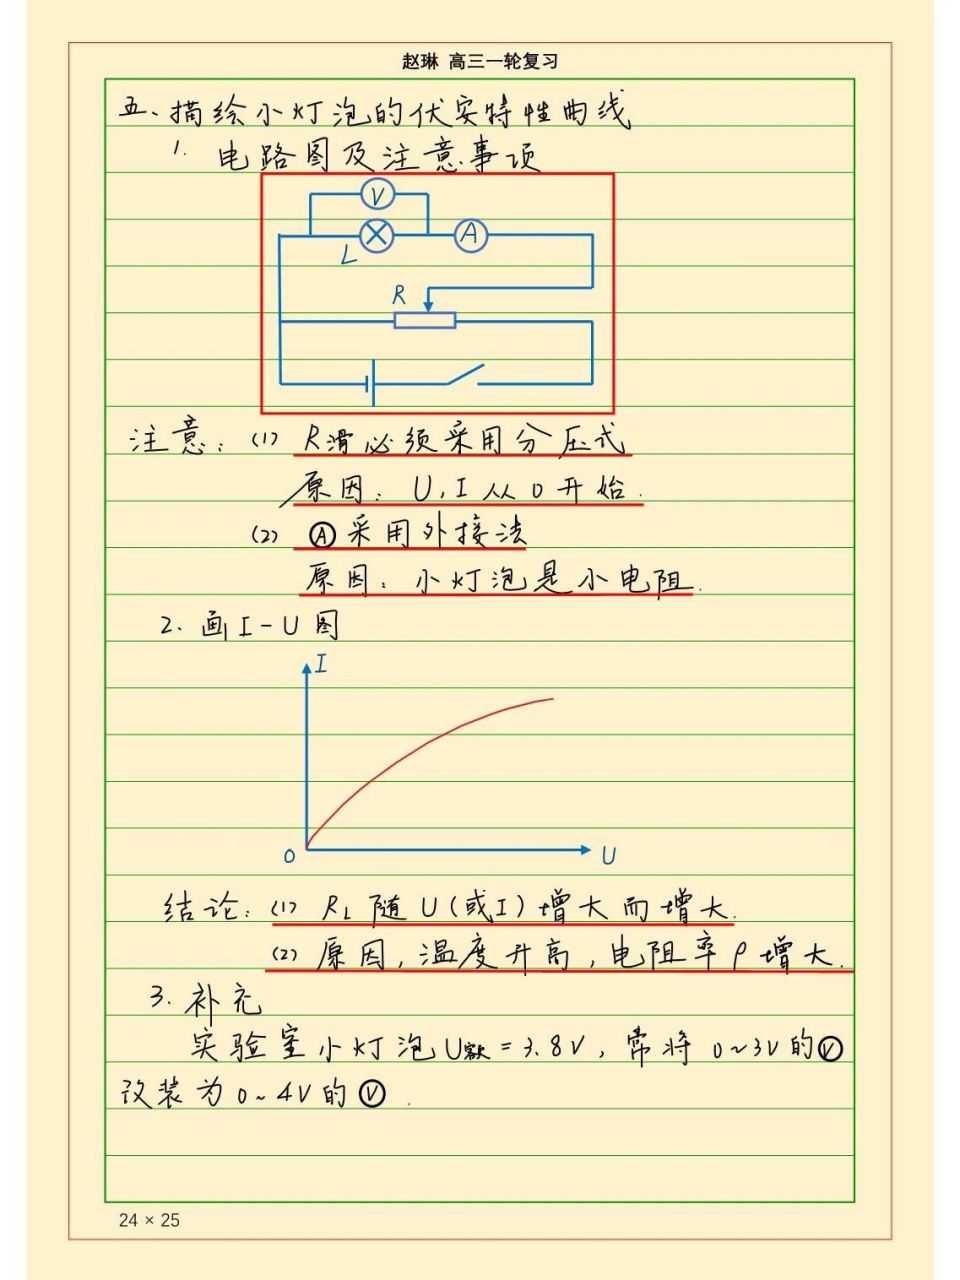 赵琳 高三一轮复习
五、描绘小灯泡的伏安特性曲线
1. 电路图及注意事项
V
L
A
R
注意：(1) R滑必须采用分压式
原因：U，I从0开始.
(2) Ⓐ采用外接法
原因：小灯泡是小电阻.
2. 画I-U图
I
0
U
结论：(1) RL随U(或I)增大而增大.
(2) 原因，温度升高，电阻率ρ增大.
3. 补充
实验室小灯泡U额=3.8V，常将0~3V的Ⓥ
改装为0~4V的Ⓥ.
24 × 25